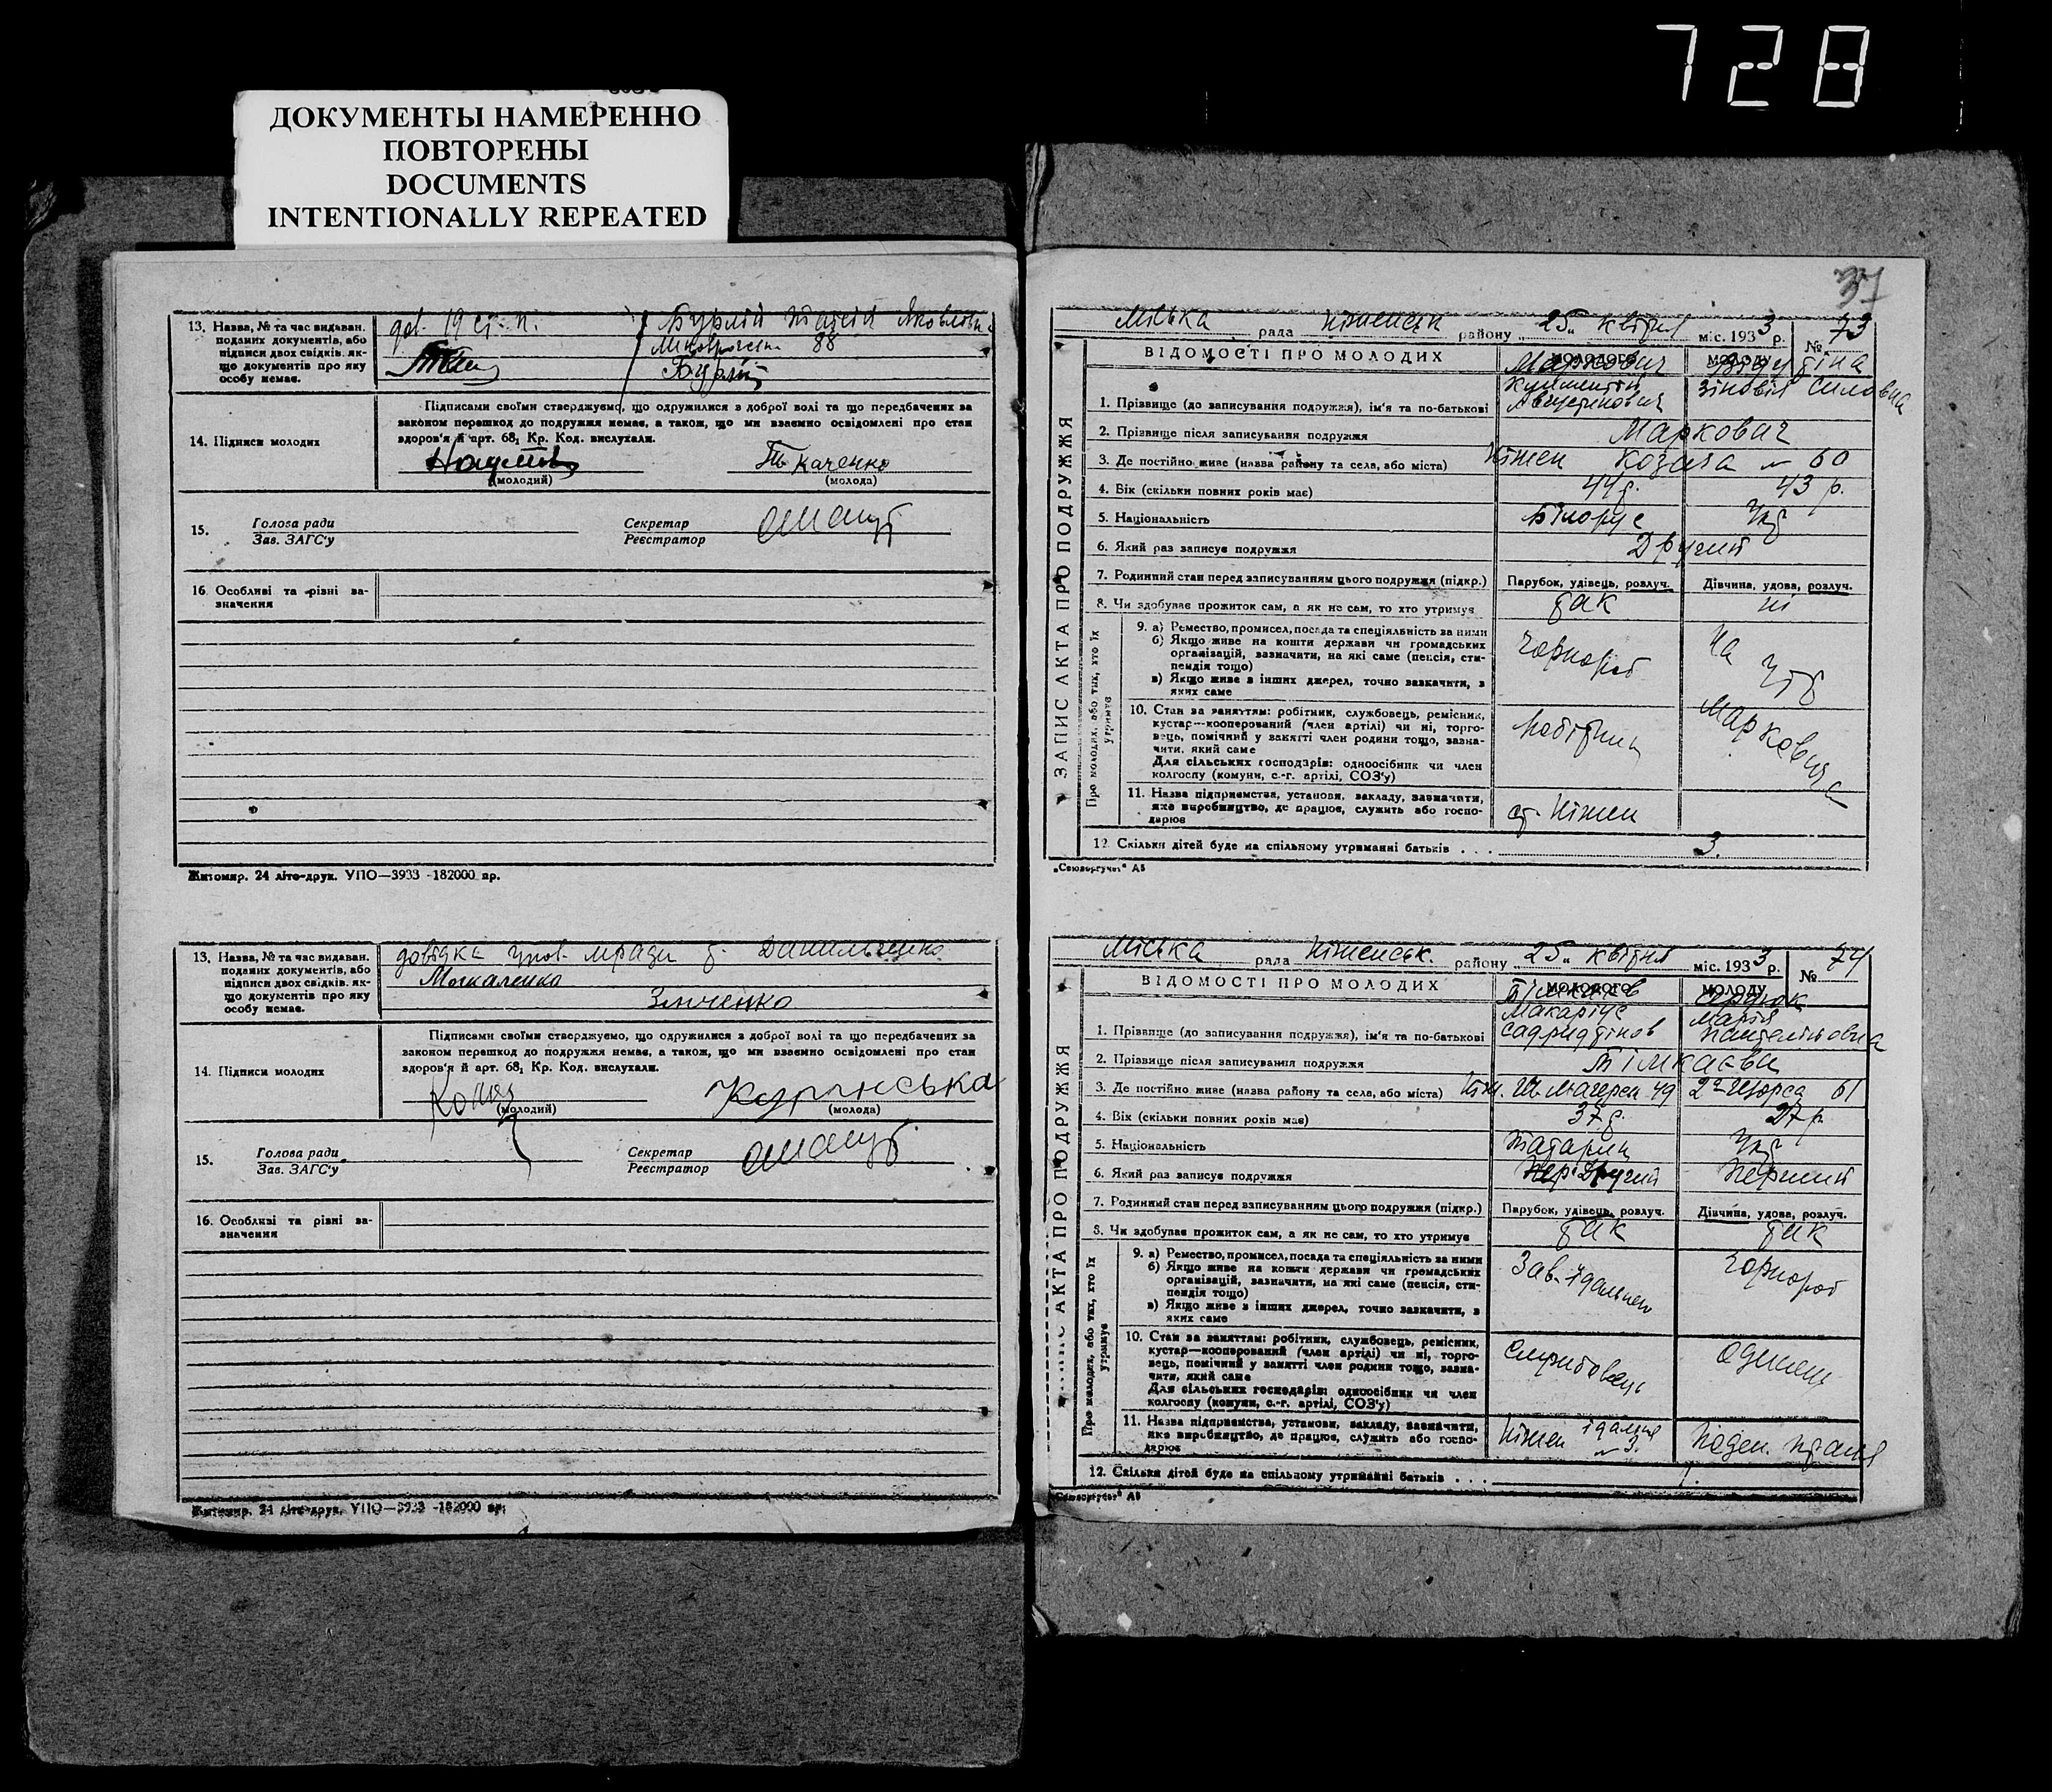 728
ДОКУМЕНТЫ НАМЕРЕННО
ПОВТОРЕНЫ
DOCUMENTS
INTENTIONALLY REPEATED
13. Назва, № та час видаван.
поданих документів, або
підписи двох свідків, як-
що документів про яку
особу немає.
Яковлевич
88
14. Підписи молодих
Підписами своїми стверджуємо, що одружилися з доброї волі та що передбачених за
законом перешкод до подружжя немає, а також, що ми взаємно освідомлені про стан
здоров'я й арт. 68₁ Кр. Код. вислухали.
Ткаченко
(молодий) (молода)
15. Голова ради Секретар
Зав. ЗАГС'у Реєстратор
16. Особливі та різні за-
значення
Житомир. 24 літо-друк. УПО—3933 -182000 пр.
13. Назва, № та час видаван.
поданих документів, або
підписи двох свідків, як-
що документів про яку
особу немає.
довідка
Москаленко
Зінченко
14. Підписи молодих
Підписами своїми стверджуємо, що одружилися з доброї волі та що передбачених за
законом перешкод до подружжя немає, а також, що ми взаємно освідомлені про стан
здоров'я й арт. 68₁ Кр. Код. вислухали.
(молодий) (молода)
15. Голова ради Секретар
Зав. ЗАГС'у Реєстратор
16. Особливі та різні за-
значення
Житомир. 24 літо-друк. УПО—3933 -182000 пр.
37
Міська рада Ніженськ району „25„ квітня міс. 1933 р. № 73
ЗАПИС АКТА ПРО ПОДРУЖЖЯ
ВІДОМОСТІ ПРО МОЛОДИХ МОЛОДОГО МОЛОДУ
Маркович
Климентій Зіновія Силовна
1. Прізвище (до записування подружжя), ім'я та по-батькові Августинович
2. Прізвище після записування подружжя Маркович
3. Де постійно живе (назва району та села, або міста) Ніжен Козача № 60
4. Вік (скільки повних років має) 44 р. 43 р.
5. Національність Білорус Укр
6. Який раз записує подружжя Другий
7. Родинний стан перед записуванням цього подружжя (підкр.) Парубок, удівець, розлуч. Дівчина, удова, розлуч.
8. Чи здобуває прожиток сам, а як не сам, то хто утримує так ні
Про молодих, або тих, хто їх утримує
9. а) Ремество, промисел, посада та спеціяльність за ними
б) Якщо живе на кошти держави чи громадських
організацій, зазначити, на які саме (пенсія, сти-
пендія тощо)
в) Якщо живе з інших джерел, точно зазначити, з
яких саме
чорнороб На утр
10. Стан за заняттям: робітник, службовець, ремісник,
кустар—кооперований (член артілі) чи ні, торго-
вець, помічний у занятті член родини тощо, зазна-
чити, який саме
Для сільських господарів: одноосібник чи член
колгоспу (комуни, с.-г. артілі, СОЗ'у)
Робітник Марковича
11. Назва підприємства, установи, закладу, зазначити,
яке виробництво, де працює, служить або госпо-
дарює
ст. Ніжен
12. Скільки дітей буде на спільному утриманні батьків . . . 3.
„Союзоргучет“ А5
Міська рада Ніженськ. району „25„ квітня міс. 1933 р. № 74
АКТА ПРО ПОДРУЖЖЯ
ВІДОМОСТІ ПРО МОЛОДИХ МОЛОДОГО МОЛОДУ
Марія
1. Прізвище (до записування подружжя), ім'я та по-батькові Садриддінов
2. Прізвище після записування подружжя Тімкаєви
3. Де постійно живе (назва району та села, або міста) 49 Щорса 61
4. Вік (скільки повних років має) 37 р. 27 р.
5. Національність Татарин Укр
6. Який раз записує подружжя Другий Перший
7. Родинний стан перед записуванням цього подружжя (підкр.) Парубок, удівець, розлуч. Дівчина, удова, розлуч.
8. Чи здобуває прожиток сам, а як не сам, то хто утримує так так
Про молодих, або тих, хто їх утримує
9. а) Ремество, промисел, посада та спеціяльність за ними
б) Якщо живе на кошти держави чи громадських
організацій, зазначити, на які саме (пенсія, сти-
пендія тощо)
в) Якщо живе з інших джерел, точно зазначити, з
яких саме
Зав. їдальнею чорнороб
10. Стан за заняттям: робітник, службовець, ремісник,
кустар—кооперований (член артілі) чи ні, торго-
вець, помічний у занятті член родини тощо, зазна-
чити, який саме
Для сільських господарів: одноосібник чи член
колгоспу (комуни, с.-г. артілі, СОЗ'у)
Службовець
11. Назва підприємства, установи, закладу, зазначити,
яке виробництво, де працює, служить або госпо-
дарює
Ніжен їдальня № 3. Поден. праця
12. Скільки дітей буде на спільному утриманні батьків . . . 1.
„Союзоргучет“ А5